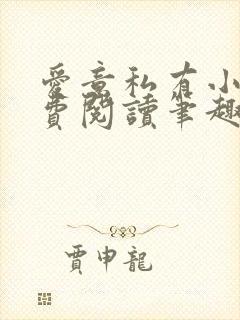 愛意私有小
費閱讀筆趣
賈申龍